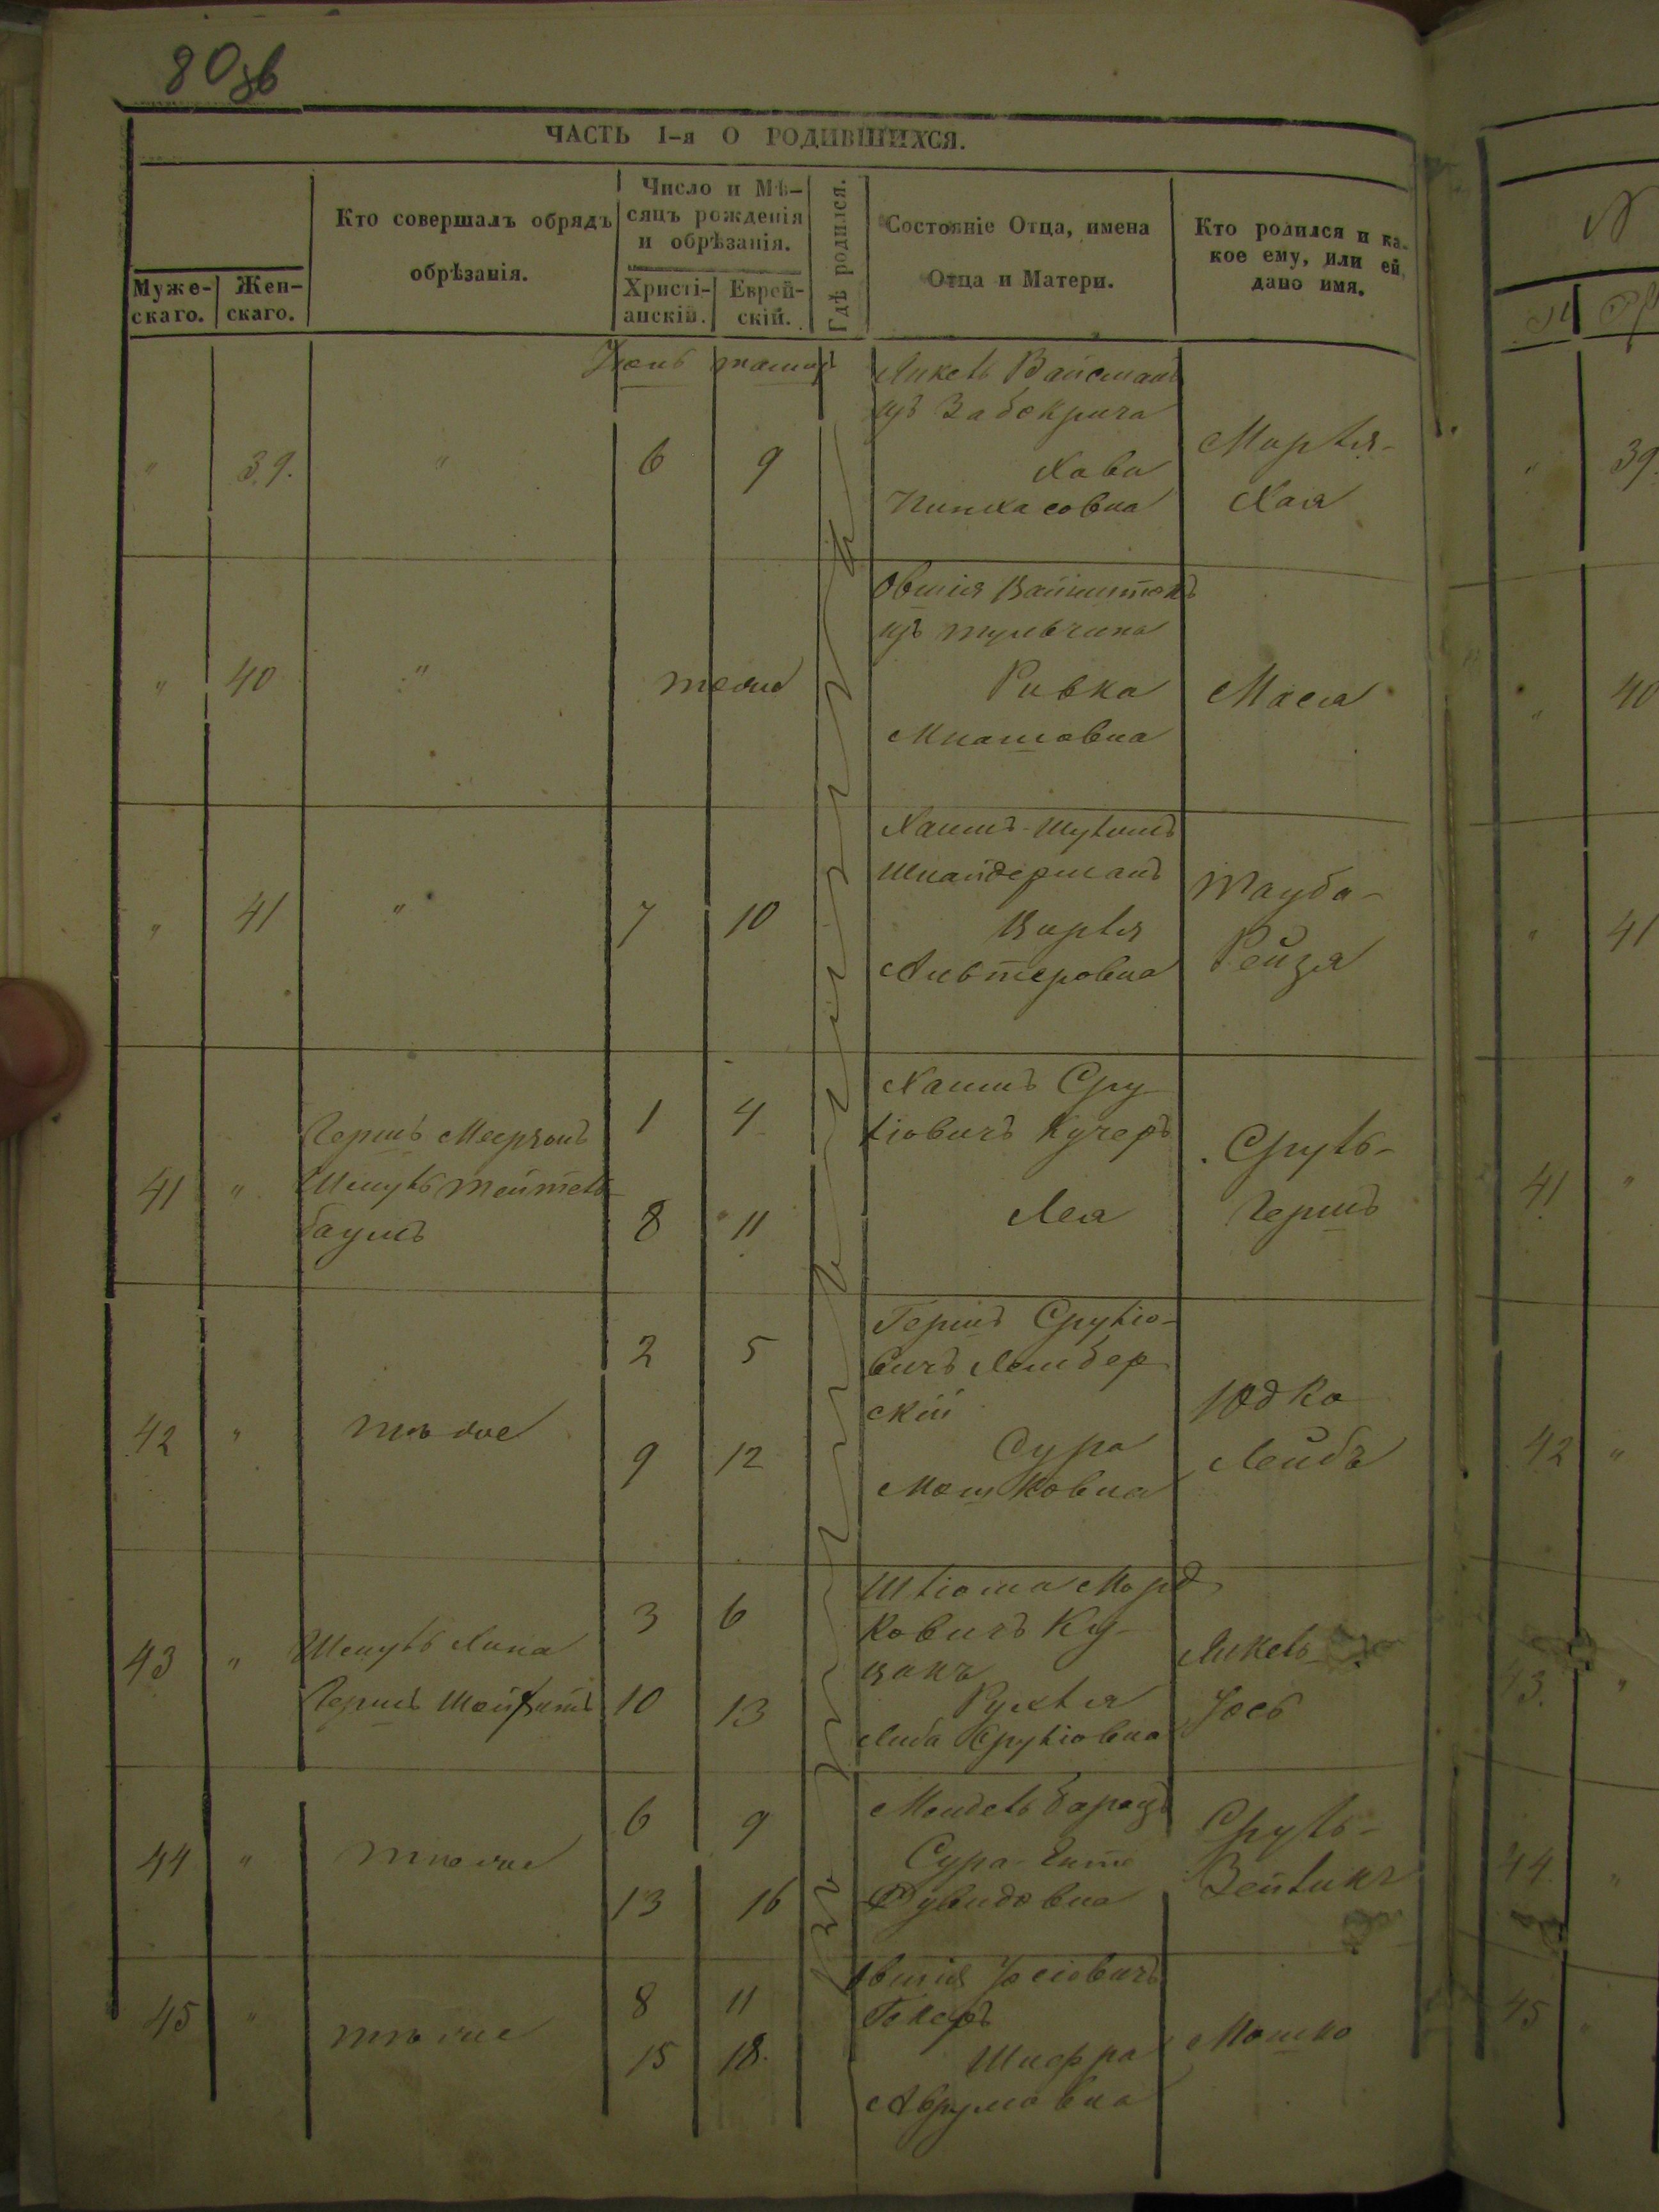 80зв
ЧАСТЬ I-я О РОДИВШИХСЯ.
Муже-
скаго.
Жен-
скаго.
Кто совершалъ обрядъ
обрѣзанія.
Число и Мѣ-
сяцъ рожденія
и обрѣзанія.
Христі-
анскій.
Еврей-
скій.
Гдѣ родился.
Состояніе Отца, имена
Отца и Матери.
Кто родился и ка-
кое ему, или ей,
дано имя.
"
39.
"
6
9
Янкель Вайсманъ
изъ Забокрича
Хава
Пинхасовна
Маріля-
Хая
"
40
"
тоже
Овшія Вайнштокъ
изъ Тульчина
Ривка
Мася
"
41
"
7
10
Хаимъ-Шулимъ
Шнайдерманъ
Альтеровна
Тауба-
Рейзя
41
"
Гершъ
Шмуль Тейтель-
баумъ
1
4
8
11
Хаимъ Сру
ліовичъ Кучеръ
Лея
Сруль-
Гершъ
42
"
тоже
2
5
9
12
Гершъ Сруліо-
вичъ Лембер
скій
Сура
Мошковна
Юдко
Лейбъ
43
"
Шмуль
Гершъ
3
6
10
13
Шліома Морд
ковичъ Ку-
Рухля
Либа Сруліовна
Янкель
Іось
44
"
тоже
6
9
13
16
Мендель Баразъ
Сура
Дувидовна
Сруль-
Зейликъ
45
"
тоже
8
11
15
18.
Овшія Іосіовичъ
Шифра
Аврумовна
Мошко
39.
40
41
41
"
42
"
43.
"
44
"
45